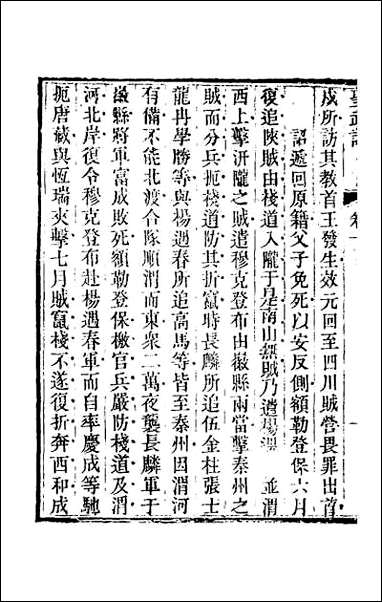 聖武記
卷十
戍所訪其教首王發生效元回至四川賊營畏罪出首
詔遞回原籍父子免死以安反側額勒登保六月
復追陝賊由棧道入隴于是南山無賊乃遣楊遇 並渭
西上擊汧隴之賊遣穆克登布由徽縣兩當擊秦州之
賊而分兵扼棧道防其折竄時長麟所追伍金柱張士
龍冉學勝等與楊遇春所追高馬等皆至秦州因渭河
有備不能北渡合隊順渭而東衆二萬夜襲長麟軍于
徽縣將軍富成敗死額勒登保檄官兵嚴防棧道及渭
河北岸復令穆克登布赴楊遇春軍而自率慶成等馳
扼唐藏與恆瑞夾擊七月賊竄棧不遂復折奔西和成